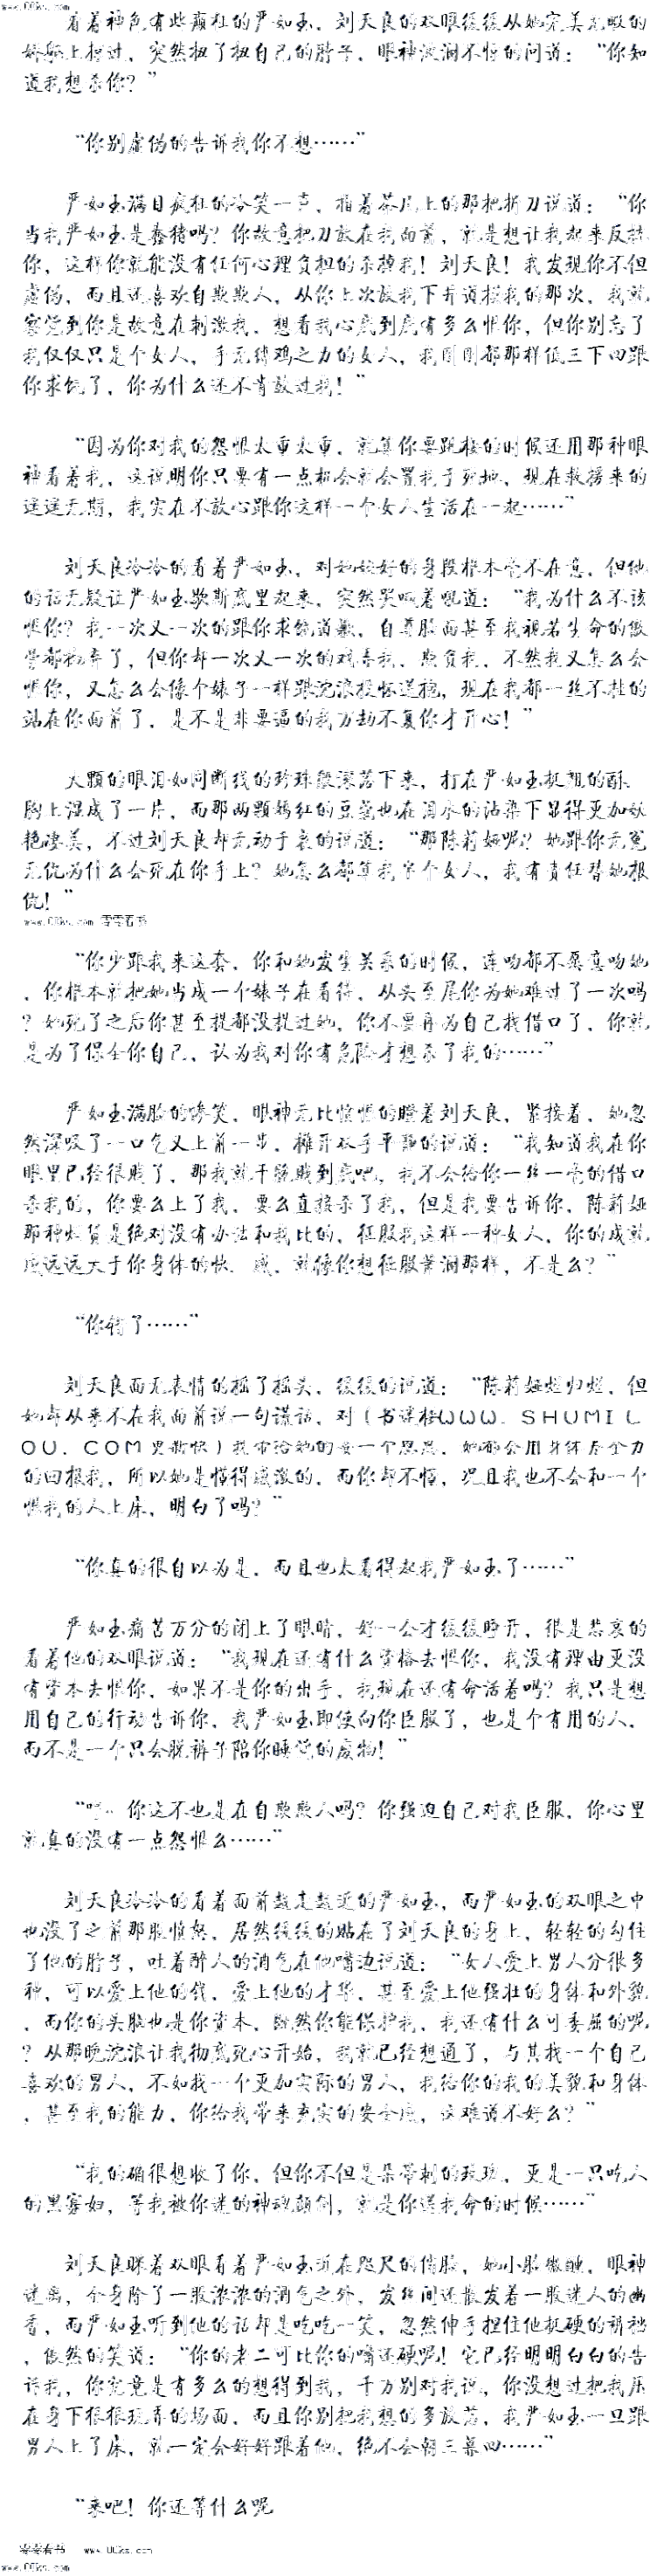 www.00ks.com
看着神色有些癫狂的严如玉，刘天良的双眼缓缓从她完美无瑕的
娇躯上掠过，突然扭了扭自己的脖子，眼神波澜不惊的问道：“你知
道我想杀你？”
“你别虚伪的告诉我你不想……”
严如玉满目疯狂的冷笑一声，指着茶几上的那把折刀说道：“你
当我严如玉是蠢猪吗？你故意把刀放在我面前，就是想让我起来反抗
你，这样你就能没有任何心理负担的杀掉我！刘天良！我发现你不但
虚伪，而且还喜欢自欺欺人，从你上次放我下井道摸我的那次，我就
察觉到你是故意在刺激我，想看我心底到底有多么恨你，但你别忘了
我仅仅只是个女人，手无缚鸡之力的女人，我刚刚都那样低三下四跟
你求饶了，你为什么还不肯放过我！”
“因为你对我的怨恨太重太重，就算你要跳楼的时候还用那种眼
神看着我，这说明你只要有一点机会就会置我于死地，现在救援来的
遥遥无期，我实在不放心跟你这样一个女人生活在一起……”
刘天良冷冷的看着严如玉，对她姣好的身段根本毫不在意，但他
的话无疑让严如玉歇斯底里起来，突然哭喊着吼道：“我为什么不该
恨你？我一次又一次的跟你求饶道歉，自尊脸面甚至我视若生命的傲
骨都抛弃了，但你却一次又一次的戏弄我、欺负我，不然我又怎么会
恨你，又怎么会像个婊子一样跟沈浪投怀送抱，现在我都一丝不挂的
站在你面前了，是不是非要逼的我万劫不复你才开心！”
大颗的眼泪如同断线的珍珠般滚落下来，打在严如玉挺翘的酥
胸上湿成了一片，而那两颗嫣红的豆蔻也在泪水的沾染下显得更加妖
艳凄美，不过刘天良却无动于衷的说道：“那陈莉娅呢？她跟你无冤
无仇为什么会死在你手上？她怎么都算我半个女人，我有责任替她报
仇！”
www.00ks.com 零零看书
“你少跟我来这套，你和她发生关系的时候，连吻都不愿意吻她
，你根本就把她当成一个婊子在看待，从头至尾你为她难过了一次吗
？她死了之后你甚至提都没提过她，你不要再为自己找借口了，你就
是为了保全你自己，认为我对你有危险才想杀了我的……”
严如玉满脸的惨笑，眼神无比愤恨的瞪着刘天良，紧接着，她忽
然深吸了一口气又上前一步，摊开双手平静的说道：“我知道我在你
眼里已经很贱了，那我就干脆贱到底吧，我不会给你一丝一毫的借口
杀我的，你要么上了我，要么直接杀了我，但是我要告诉你，陈莉娅
那种烂货是绝对没有办法和我比的，征服我这样一种女人，你的成就
感远远大于你身体的快．感，就像你想征服萧澜那样，不是么？”
“你错了……”
刘天良面无表情的摇了摇头，缓缓的说道：“陈莉娅烂归烂，但
她却从来不在我面前说一句谎话，对（书迷楼WWW．SHUMIL
OU．COM更新快）我带给她的每一个恩惠，她都会用身体尽全力
的回报我，所以她是懂得感激的，而你却不懂，况且我也不会和一个
恨我的人上床，明白了吗？”
“你真的很自以为是，而且也太看得起我严如玉了……”
严如玉痛苦万分的闭上了眼睛，好一会才缓缓睁开，很是悲哀的
看着他的双眼说道：“我现在还有什么资格去恨你，我没有理由更没
有资本去恨你，如果不是你的出手，我现在还有命活着吗？我只是想
用自己的行动告诉你，我严如玉即便向你臣服了，也是个有用的人，
而不是一个只会脱裤子陪你睡觉的废物！”
“哼～你这不也是在自欺欺人吗？你强迫自己对我臣服，你心里
就真的没有一点怨恨么……”
刘天良冷冷的看着面前越走越近的严如玉，而严如玉的双眼之中
也没了之前那股愤怒，居然缓缓的贴在了刘天良的身上，轻轻的勾住
了他的脖子，吐着醉人的酒气在他嘴边说道：“女人爱上男人分很多
种，可以爱上他的钱，爱上他的才华，甚至爱上他强壮的身体和外貌
，而你的头脑也是你资本，既然你能保护我，我还有什么可委屈的呢
？从那晚沈浪让我彻底死心开始，我就已经想通了，与其找一个自己
喜欢的男人，不如找一个更加实际的男人，我给你的我的美貌和身体
，甚至我的能力，你给我带来充实的安全感，这难道不好么？”
“我的确很想收了你，但你不但是朵带刺的玫瑰，更是一只吃人
的黑寡妇，等我被你迷的神魂颠倒，就是你送我命的时候……”
刘天良眯着双眼看着严如玉近在咫尺的俏脸，她小脸微醺，眼神
迷离，全身除了一股浓浓的酒气之外，发丝间还散发着一股迷人的幽
香，而严如玉听到他的话却是吃吃一笑，忽然伸手握住他挺硬的裤裆
，傲然的笑道：“你的老二可比你的嘴还硬呢！它已经明明白白的告
诉我，你究竟是有多么的想得到我，千万别对我说，你没想过把我压
在身下狠狠玩弄的场面，而且你别把我想的多放荡，我严如玉一旦跟
男人上了床，就一定会好好跟着他，绝不会朝三暮四……”
“来吧！你还等什么呢
零零看书 www.00ks.com
www.00ks.com